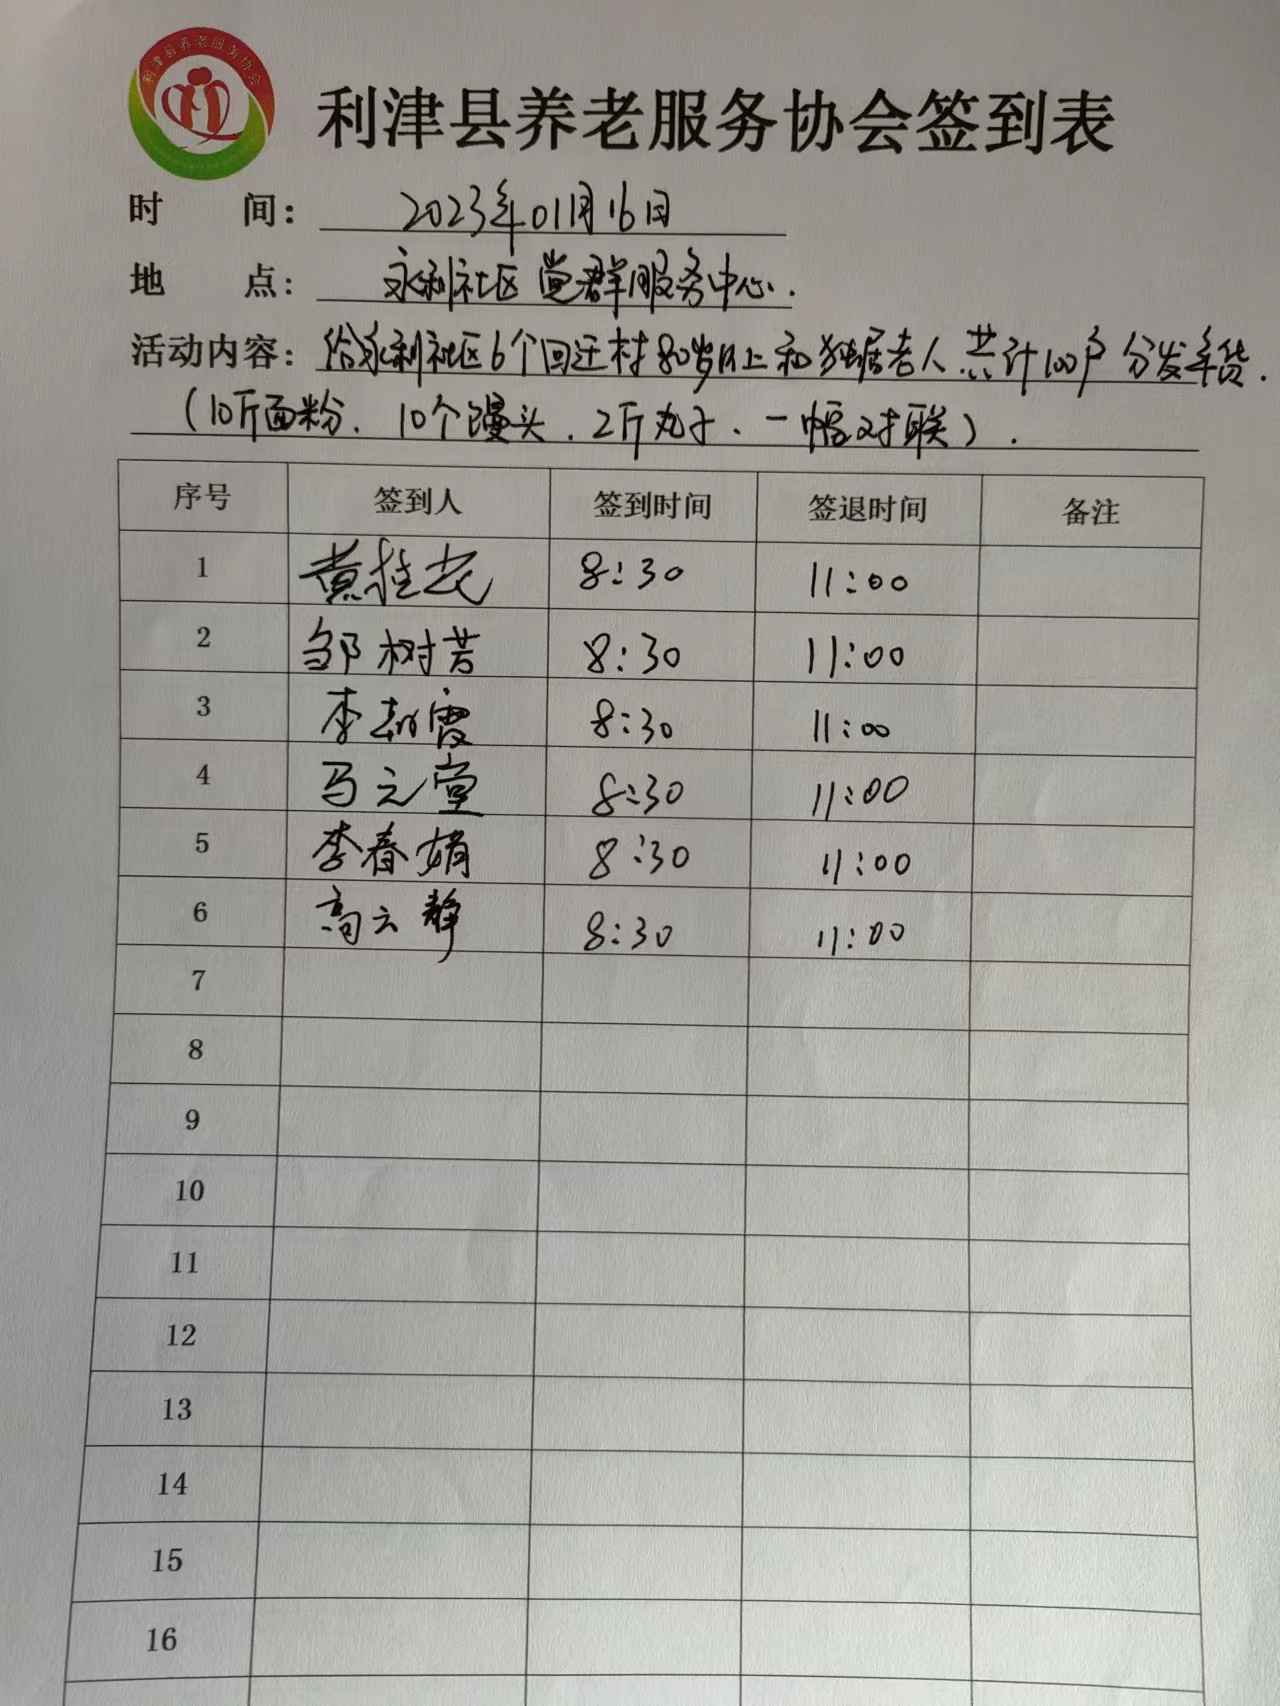 利津县养老服务协会
利津县养老服务协会签到表
时 间： 2023年01月16日
地 点： 永利社区党群服务中心.
活动内容： 给永利社区6个回迁村80岁以上和独居老人共计100户分发年货.
（10斤面粉、10个馒头、2斤丸子、一幅对联）.
序号 签到人 签到时间 签退时间 备注
1 黄桂花 8:30 11:00
2 邹树芳 8:30 11:00
3 李 霞 8:30 11:00
4 马元堂 8:30 11:00
5 李春娟 8:30 11:00
6 高云静 8:30 11:00
7
8
9
10
11
12
13
14
15
16